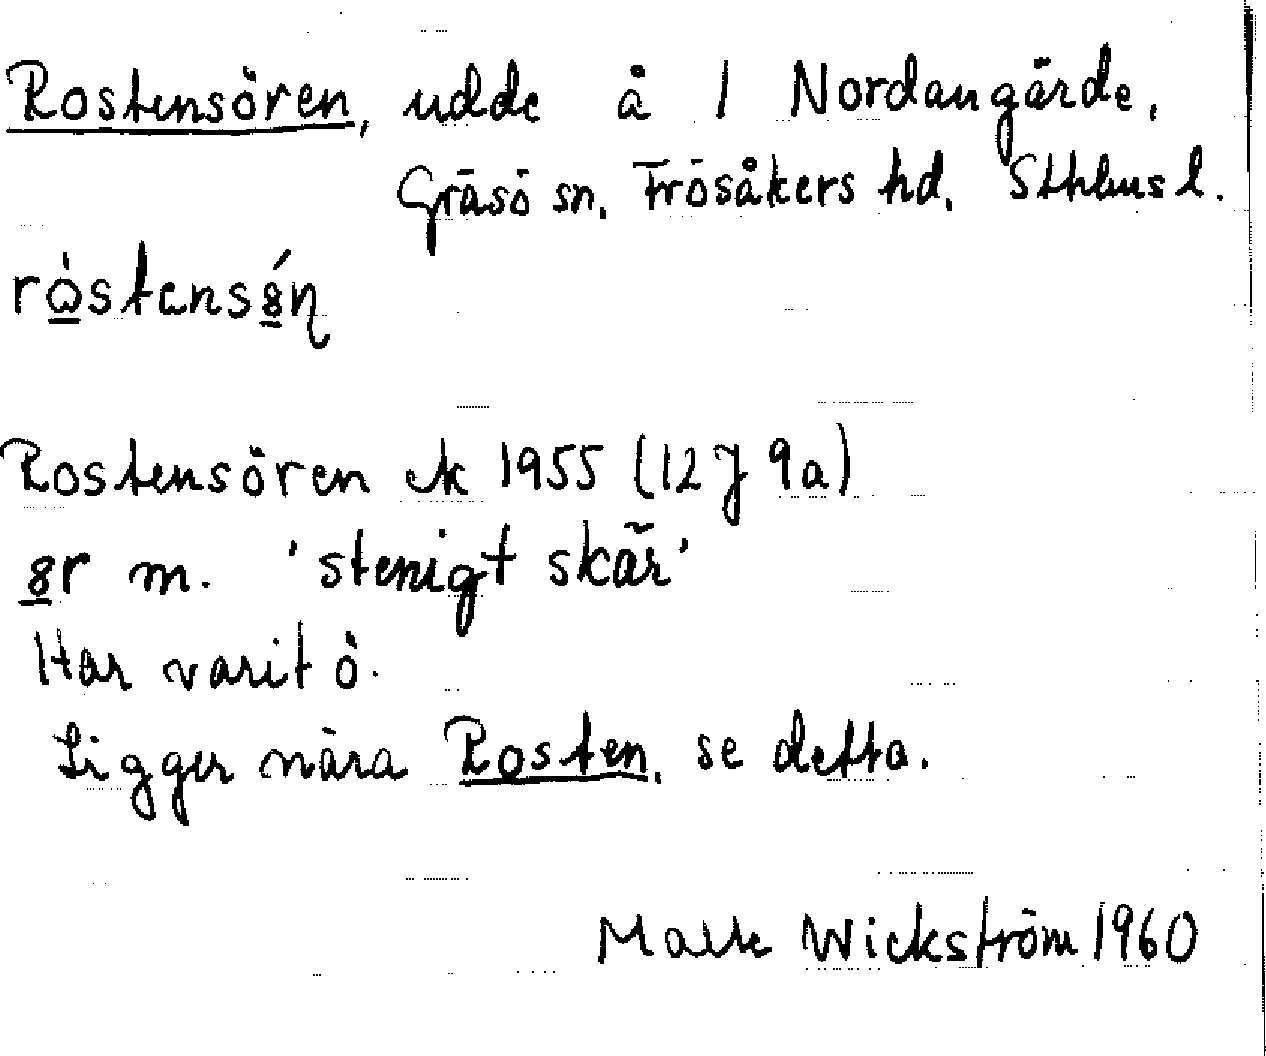 Rostensören, udde å 1 Nordangärde,
Gräsö sn. Frösåkers hd. Sthlms l.
Rostensören ek 1955 (12 J 9a)
m. 'stenigt skär'
Har varit ö.
Ligger nära Rosten, se detta.
Wickström 1960